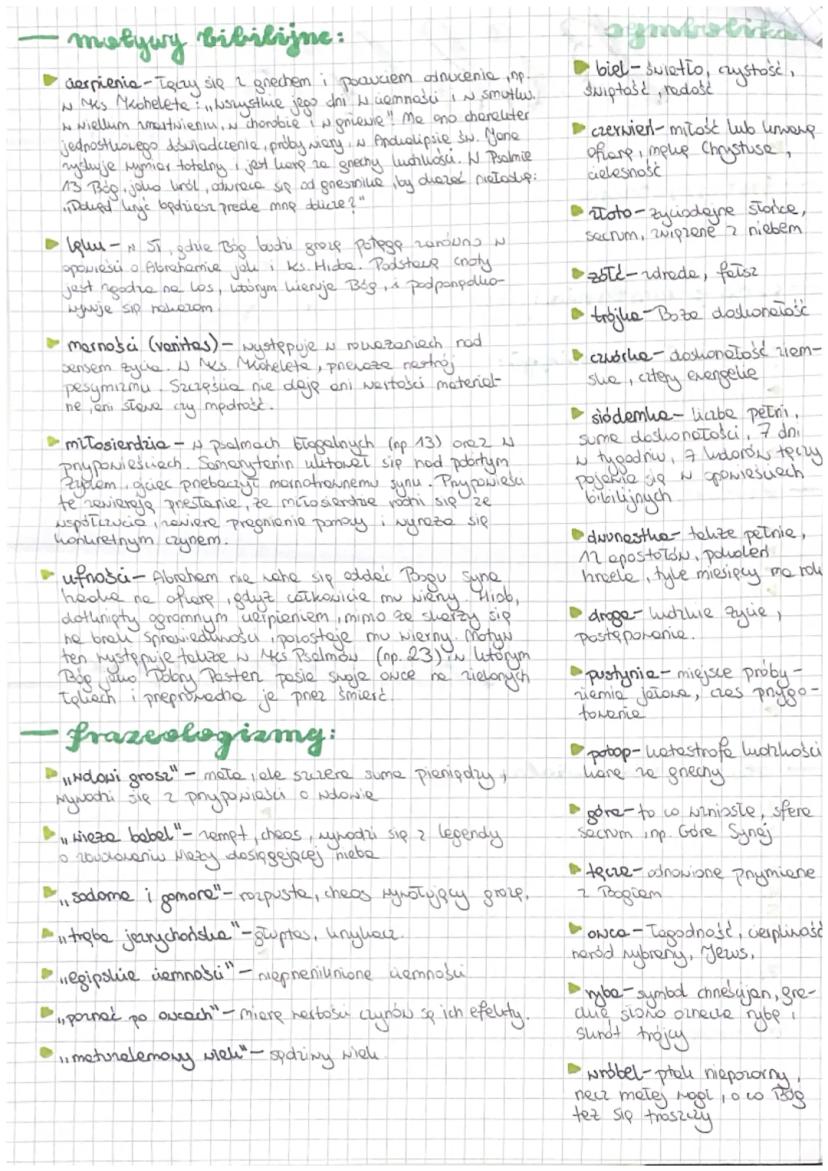 — motywy bibilijne:
cierpienia – łączy się z grzechem i poczuciem odrzucenia, np.
w Ks Koheleta: „wszystkie jego dni w ciemności i w smutku,
w wielkim zmartwieniu, w chorobie i w gniewie" Ma ono charakter
jednostkowego doświadczenia, próby wiary, w Apokalipsie św. Jana
zyskuje wymiar totalny i jest karą za grzechy ludzkości. W Psalmie
13 Bóg, jako król, odwraca się od grzesznika, by okazać niełaskę:
„Dokąd kryć będziesz przede mną oblicze?"
lęku – w ST, gdzie Bóg budzi grozę potęgą zarówno w
opowieści o Abrahamie jak i ks. Hioba. Podstawą cnoty
jest zgoda na los, którym kieruje Bóg, i podporządko-
wywuje się nakazom.
marności (vanitas) – występuje w rozważaniach nad
sensem życia. W Ks. Koheleta, przeważa nastrój
pesymizmu. Szczęścia nie dają ani wartości material-
ne, ani sława czy mądrość.
miłosierdzia – w psalmach błagalnych (np 13) oraz w
przypowieściach. Samarytanin ulitował się nad pobitym
Żydem, ojciec przebaczył marnotrawnemu synu. Przypowieści
te zawierają przesłanie, że miłosierdzie rodzi się ze
współczucia, zawiera pragnienie pomocy i wyraża się
konkretnym czynem.
ufności – Abraham nie waha się oddać Bogu syna
Isaaka na ofiarę, gdyż całkowicie mu wierzy. Hiob,
dotknięty ogromnym cierpieniem, mimo że skarży się
na brak sprawiedliwości, pozostaje mu wierny. Motyw
ten występuje także w Ks Psalmów (np. 23), w którym
Bóg jako Dobry Pasterz pasie swoje owce na zielonych
łąkach i przeprowadza je przez śmierć.
— frazeologizmy:
„wdowi grosz" – mała, ale szczera suma pieniędzy,
wywodzi się z przypowieści o wdowie
„wieża babel" – zamęt, chaos, wywodzi się z legendy
o zbudowaniu wieży dosięgającej nieba
„sodoma i gomora" – rozpusta, chaos wywołujący grozę.
„trąba jerychońska" – głuptas, krzykacz.
„egipskie ciemności" – nieprzeniknione ciemności
„poznać po owocach" – miarą wartości czynów są ich efekty.
„matuzalemowy wiek" – sędziwy wiek
symbolika
biel – światło, czystość,
świętość, radość
czerwień – miłość lub krwawą
ofiarę, mękę Chrystusa,
cielesność
złoto – życiodajne słońce,
sacrum, związane z niebem
żółć – zdrada, fałsz
trójka – Boża doskonałość
czwórka – doskonałość ziem-
ska, cztery ewangelie
siódemka – liczba pełni,
suma doskonałości, 7 dni
w tygodniu, 7 kolorów tęczy
pojawia się w opowieściach
bibilijnych
dwunastka – także pełnia,
12 apostołów, pokoleń
Izraela, tyle miesięcy ma rok
droga – ludzkie życie,
postępowanie.
pustynia – miejsce próby –
ziemia jałowa, czas przygo-
towania
potop – katastrofa ludzkości
kara za grzechy
góra – to co wzniosłe, sfera
sacrum, np. Góra Synaj
tęcza – odnowione przymierze
z Bogiem
owca – łagodność, cierpliwość
naród wybrany, Jezus,
ryba – symbol chrześcijan, gre-
ckie słowo oznacza rybę,
skrót trójcy
wróbel – ptak niepozorny,
rzecz małej wagi, o co Bóg
też się troszczy